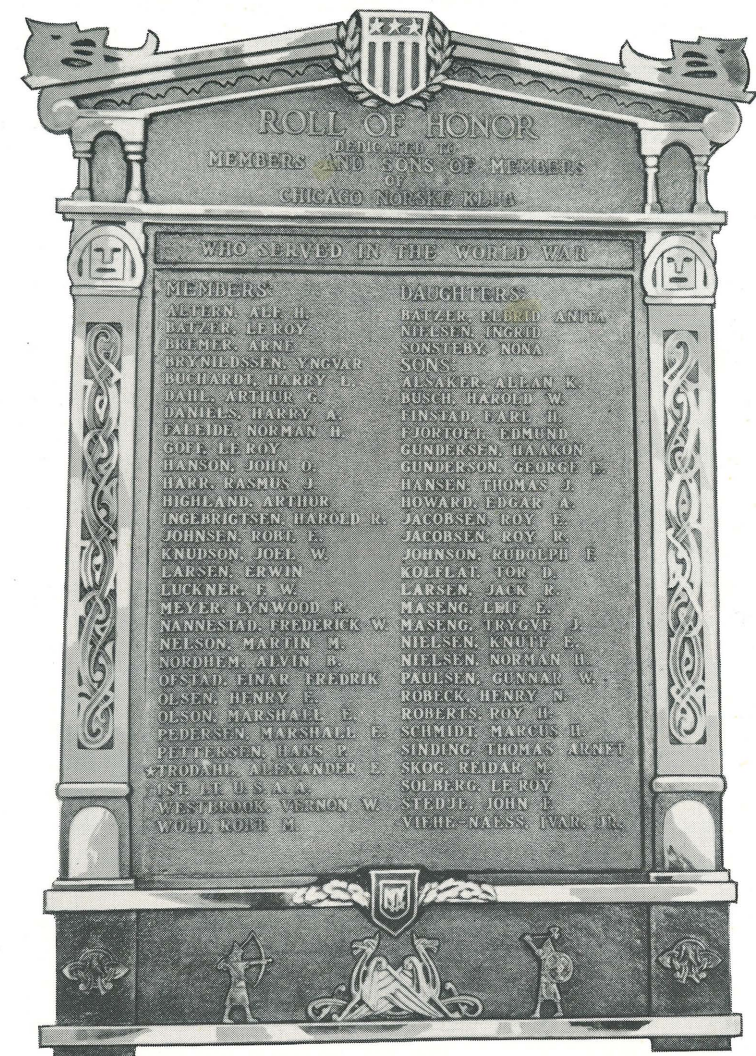 ROLL OF HONOR
DEDICATED TO
MEMBERS AND SONS OF MEMBERS
OF
CHICAGO NORSKE KLUB
WHO SERVED IN THE WORLD WAR
MEMBERS:
ALTERN, ALF H.
BATZER, LE ROY
BREMER, ARNE
BRYNILDSSEN, YNGVAR
BUCHARDT, HARRY L.
DAHL, ARTHUR G.
DANIELS, HARRY A.
FALEIDE, NORMAN H.
GOFF, LE ROY
HANSON, JOHN O.
HARR, RASMUS J.
HIGHLAND, ARTHUR
INGEBRIGTSEN, HAROLD R.
JOHNSEN, ROBT. E.
KNUDSON, JOEL W.
LARSEN, ERWIN
LUCKNER, F. W.
MEYER, LYNWOOD R.
NANNESTAD, FREDERICK W.
NELSON, MARTIN M.
NORDHEM, ALVIN B.
OFSTAD, EINAR FREDRIK
OLSEN, HENRY F.
OLSON, MARSHALL E.
PEDERSEN, MARSHALL E.
PETTERSEN, HANS P.
★TRODAHL, ALEXANDER E.
1ST. LT. U.S.A.A.
WESTBROOK, VERNON W.
WOLD, ROBT. M.
DAUGHTERS:
BATZER, ELBRID ANITA
NIELSEN, INGRID
SONSTEBY, NONA
SONS:
ALSAKER, ALLAN K.
BUSCH, HAROLD W.
FINSTAD, EARL H.
FJORTOFT, EDMUND
GUNDERSEN, HAAKON
GUNDERSON, GEORGE E.
HANSEN, THOMAS J.
HOWARD, EDGAR A.
JACOBSEN, ROY E.
JACOBSEN, ROY R.
JOHNSON, RUDOLPH F.
KOLFLAT, TOR D.
LARSEN, JACK R.
MASENG, LEIF E.
MASENG, TRYGVE J.
NIELSEN, KNUTE E.
NIELSEN, NORMAN H.
PAULSEN, GUNNAR W.
ROBECK, HENRY N.
ROBERTS, ROY H.
SCHMIDT, MARCUS H.
SINDING, THOMAS ARNET
SKOG, REIDAR M.
SOLBERG, LE ROY
STEDJE, JOHN E.
VIEHE-NAESS, IVAR, JR.